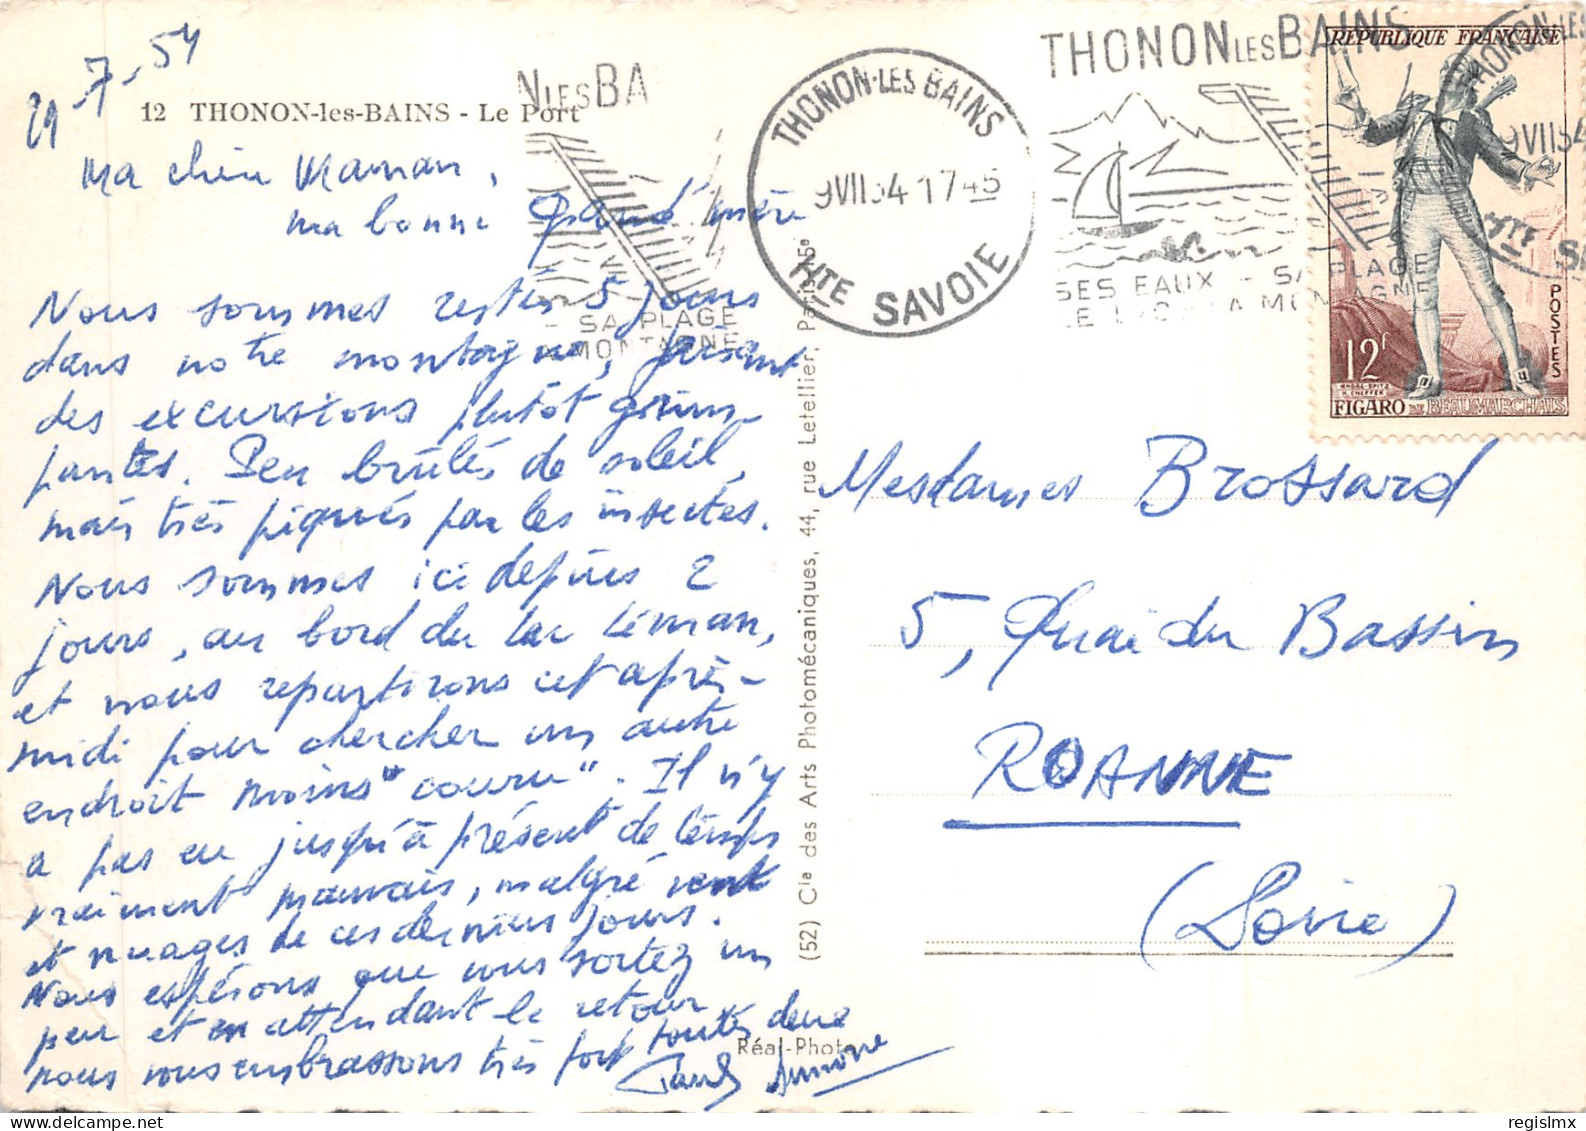 29-7-54
12 THONON-les-BAINS - Le Port
Ma chère Maman,
ma bonne grand'mère
Nous sommes restés 5 jours
dans notre montagne, faisant
des excursions plutôt grim-
pantes. Peu brûlés de soleil,
mais très piqués par les insectes.
Nous sommes ici depuis 2
jours, au bord du lac Léman,
et nous repartirons cet après-
midi pour chercher un autre
endroit moins "couru". Il n'y
a pas eu jusqu'à présent de temps
vraiment mauvais, malgré vent
et nuages de ces derniers jours.
Nous espérons que vous sortez un
peu et en attendant le retour
nous vous embrassons très fort toutes deux
Simone
Réal-Photo
(52) Cie des Arts Photomécaniques, 44, rue Letellier, Paris-15e
N LES BA
- SA PLAGE
A MONTAGNE
THONON-LES BAINS
9 VII 54 17 45
HTE SAVOIE
THONON LES BAINS
SES EAUX - SA PLAGE
LE LAC LA MONTAGNE
THONON-LES
9 VII 54
HTE SA
RÉPUBLIQUE FRANÇAISE
POSTES
12F
FIGARO DE BEAUMARCHAIS
Mesdames Brossard
5, Quai du Bassin
ROANNE
(Loire)
regislmx